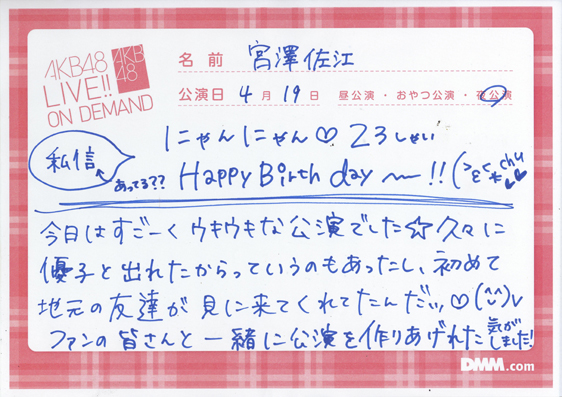 AKB48
LIVE!!
ON DEMAND
AKB
48
名前 宮澤佐江
公演日 4月19日 昼公演・おやつ公演・夜公演
にゃんにゃん♡23しゃい
私信
あってる??
Happy Birthday 〜 !! (>ε<* chu ♥♥
今日はすごーくウキウキな公演でした☆久々に
優子と出れたからっていうのもあったし、初めて
地元の友達が見に来てくれてたんだぃッ♡(^^)v
ファンの皆さんと一緒に公演を作りあげれた気がしました!
DMM.com